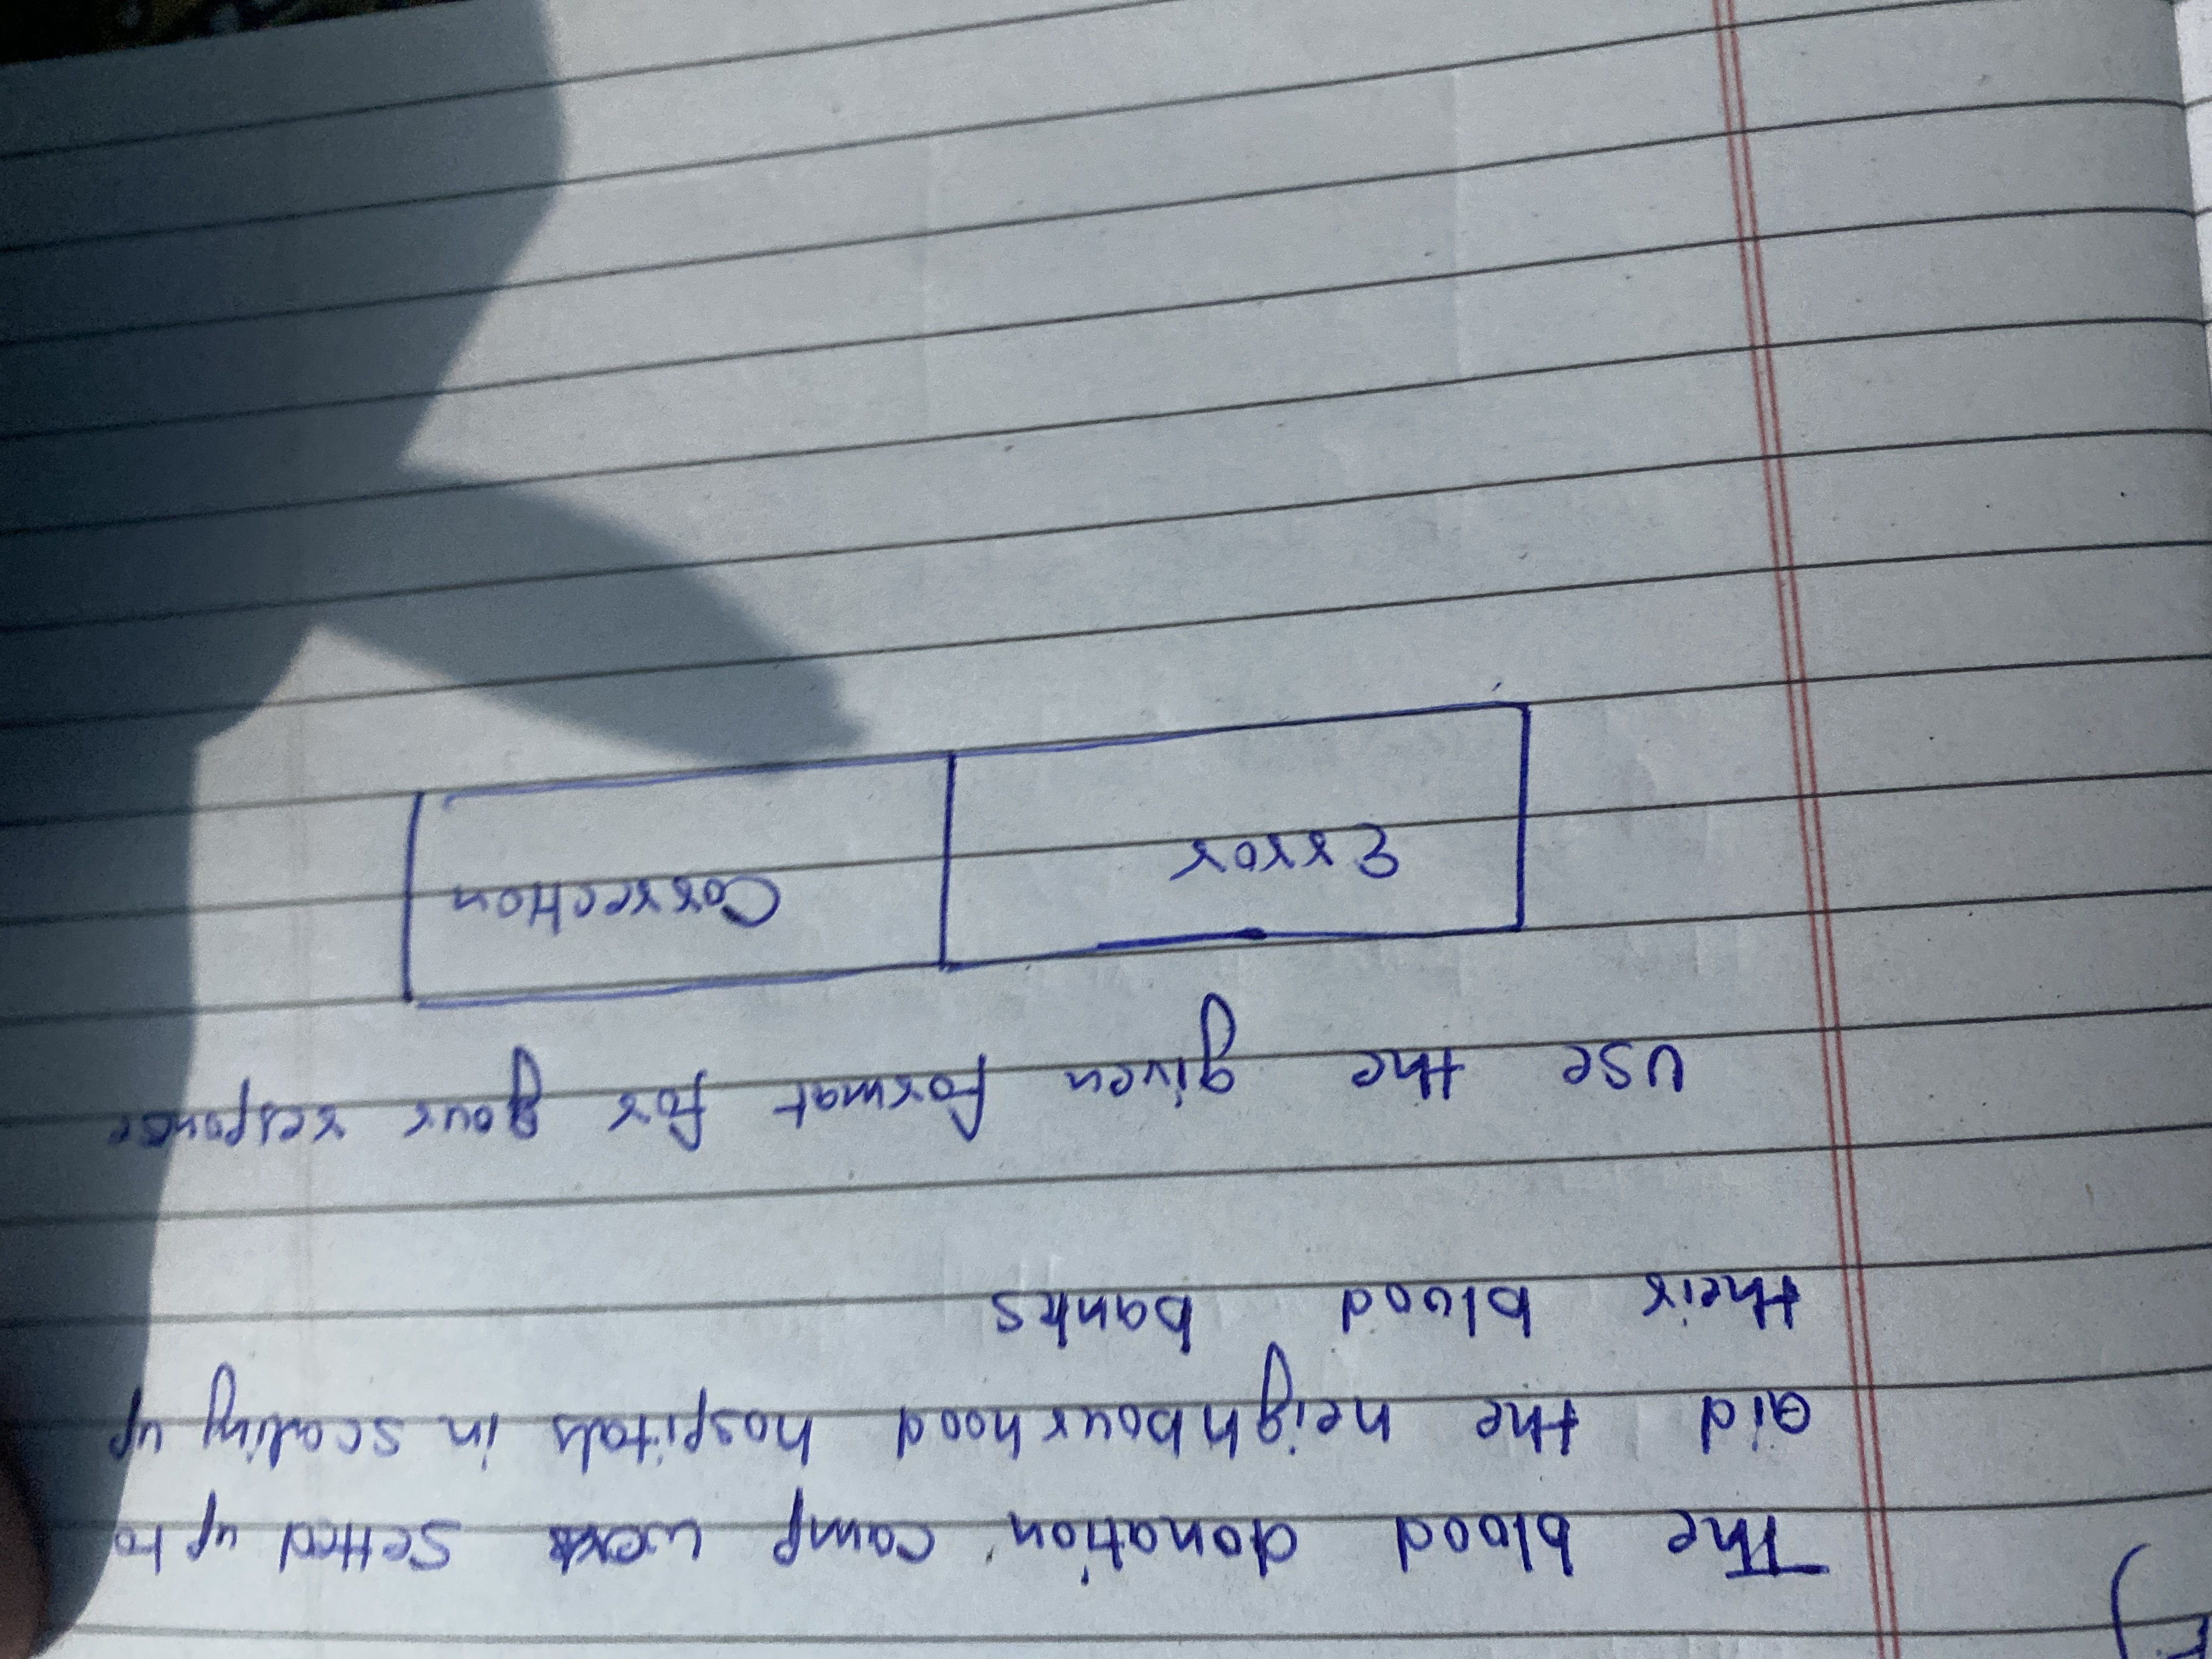 The blood donation camp was setted up to
aid the neighbourhood hospitals in scaling up
their blood banks
use the given format for your response
Error
Correction